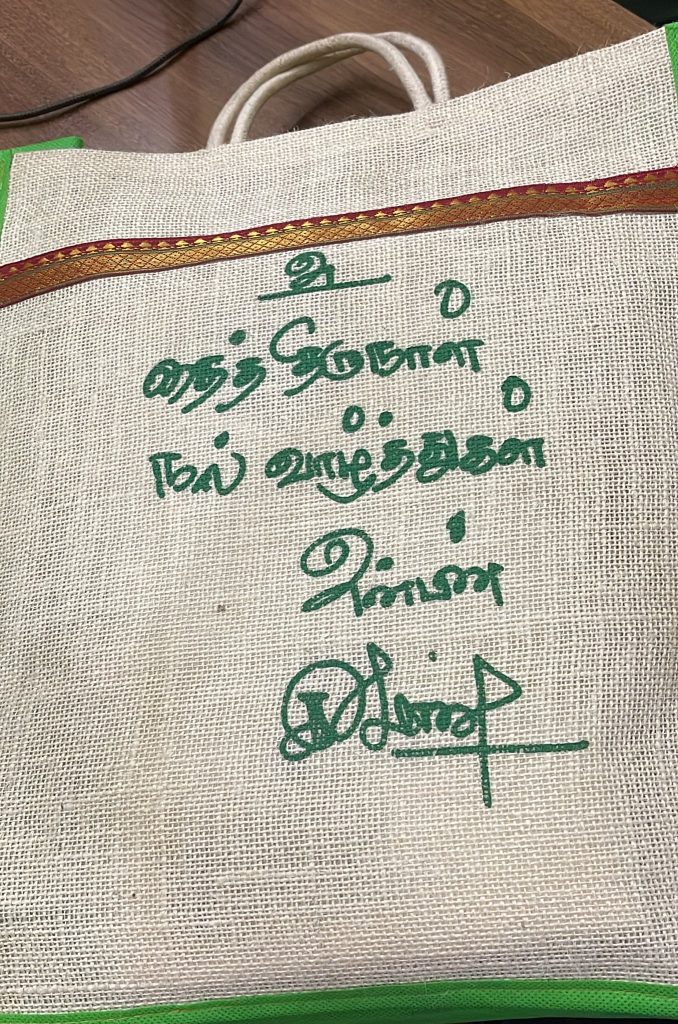 உ
தைத் திருநாள்
நல் வாழ்த்துகள்
அன்பன்